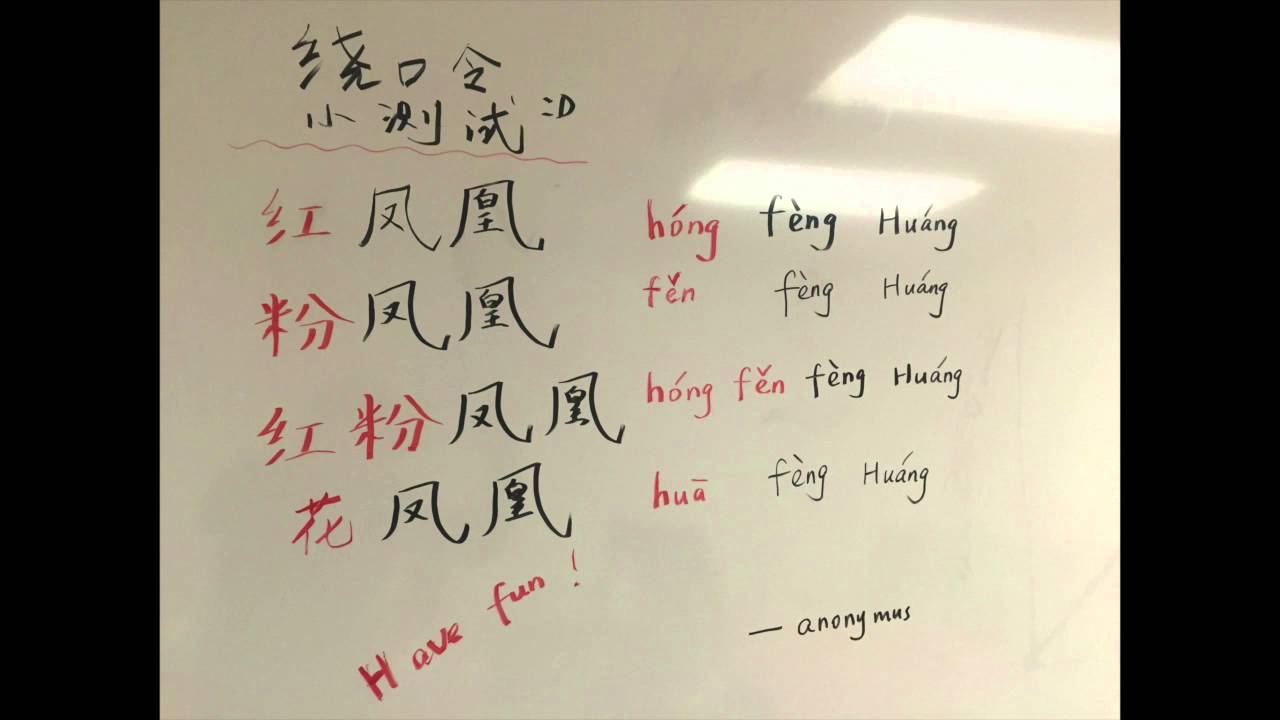 绕口令
小测试 :D
红凤凰 hóng fèng Huáng
粉凤凰 fěn fèng Huáng
红粉凤凰 hóng fěn fèng Huáng
花凤凰 huā fèng Huáng
Have fun!
— anonymus